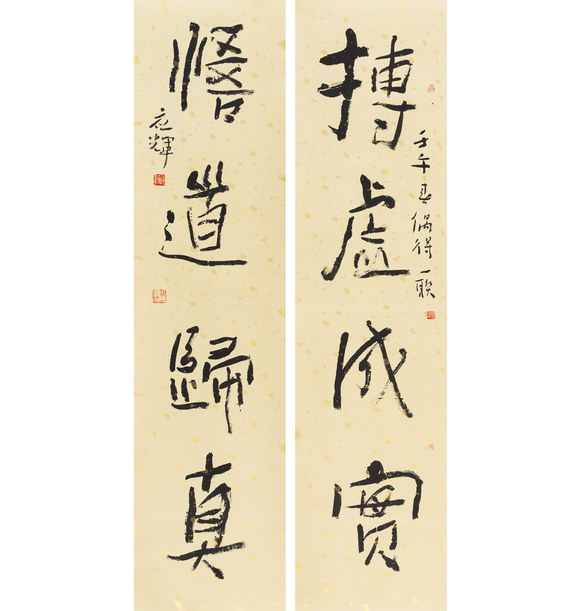 摶虛成實
壬午春偶得一联
悟道歸真
应輝